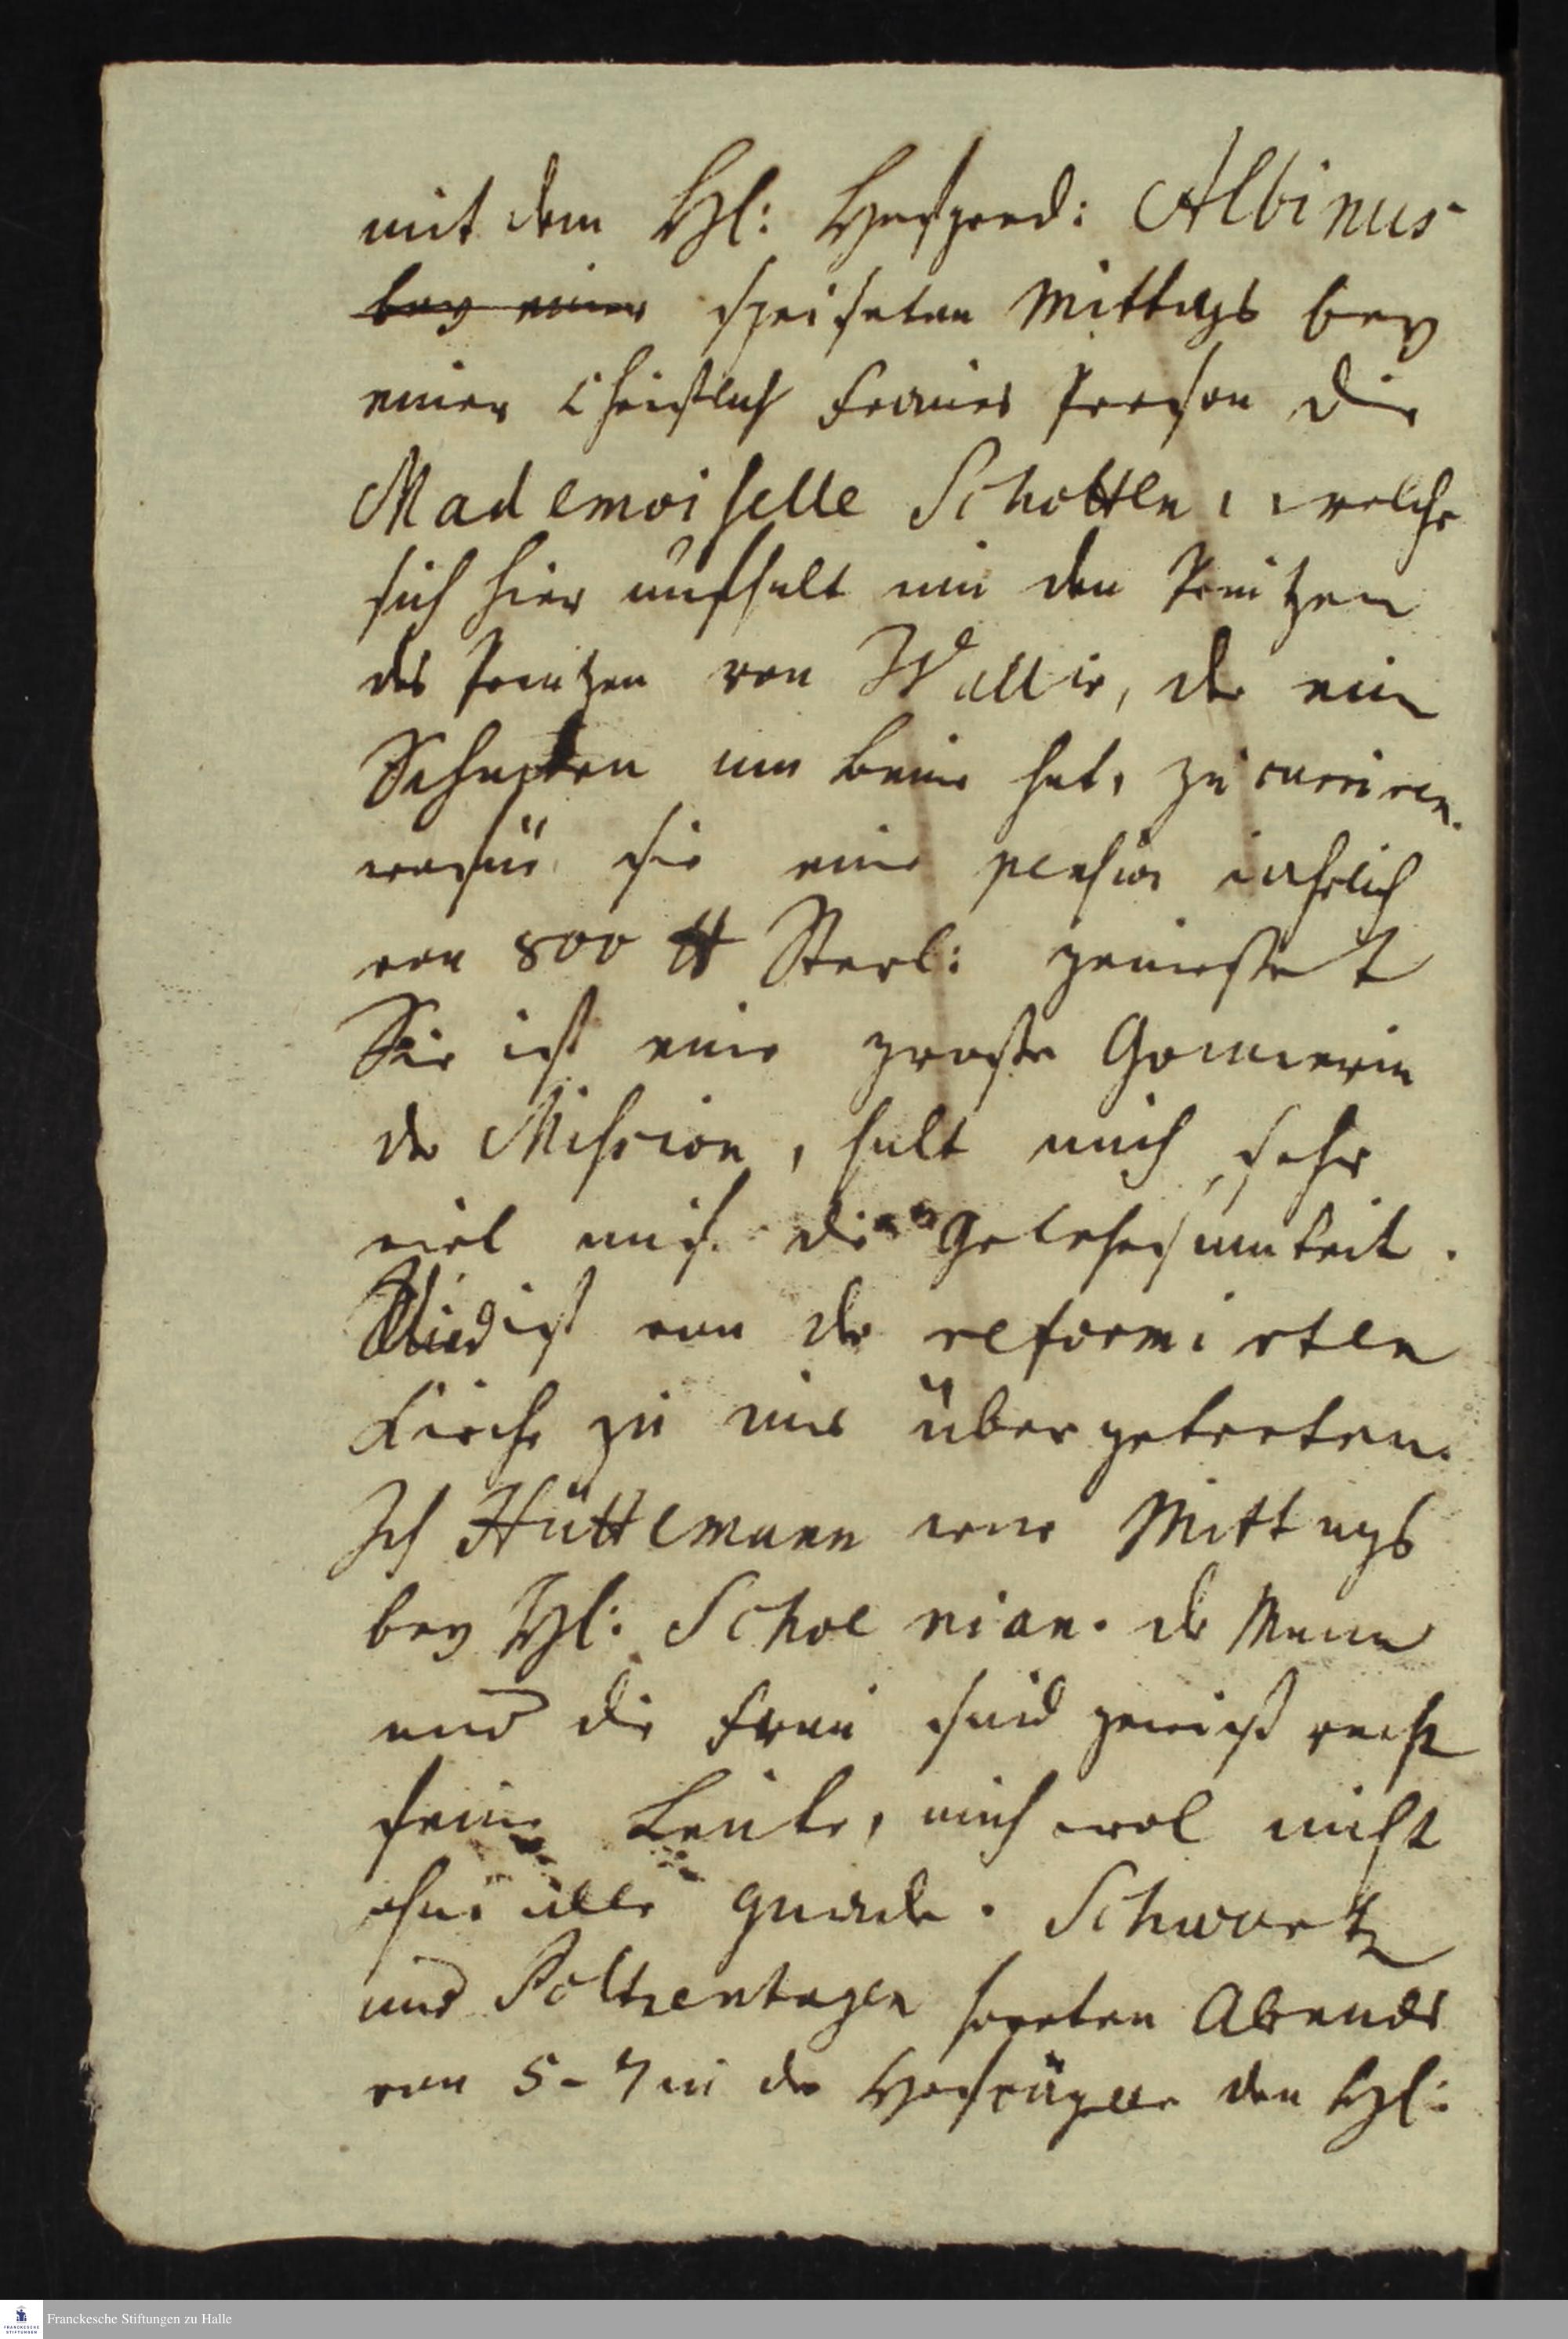 mit dem Hl: Hofpred: Albinus
bey einer speiseten Mittags bey
einer Christlich Frauens Person die
Mademoiselle Schotten, welche
sich hier aufhalt um den Printzen
des Printzen von Wallis, der ein
Schaden am Beine hat, zu curriren.
wofür sie eine pension jahrlich
von 800 ℔ Sterl: geniesset
Sie ist eine grosse Gonnerin
der Mission, halt auch sehr
viel auf die Gelehrsamkeit.
ist von der reformirten
Kirche zu uns übergetreten.
Ich Hüttemann war Mittags
bey Hl: Schoenian. der Mann
und die Frau sind gewiss recht
feine Leute, auch wol nicht
ohne alle Gnade. Schwartz
und Poltzenhagen horeten Abends
von 5-7 in der Hofcapelle den Hl:
Franckesche Stiftungen zu Halle
FRANCKESCHE
STIFTUNGEN